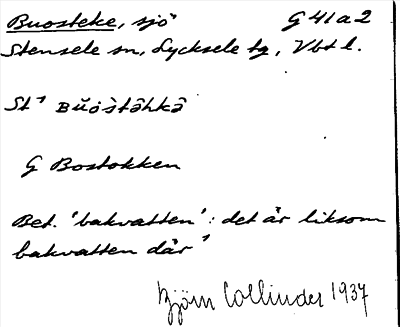 Buosteke, sjö G 41 a 2
Stensele sn, Lycksele tg, Vbtl.
St¹ Bŭòstăhkă
G Bostokken
Bet. 'bakvatten': det är liksom
bakvatten där'
Björn Collinder 1937